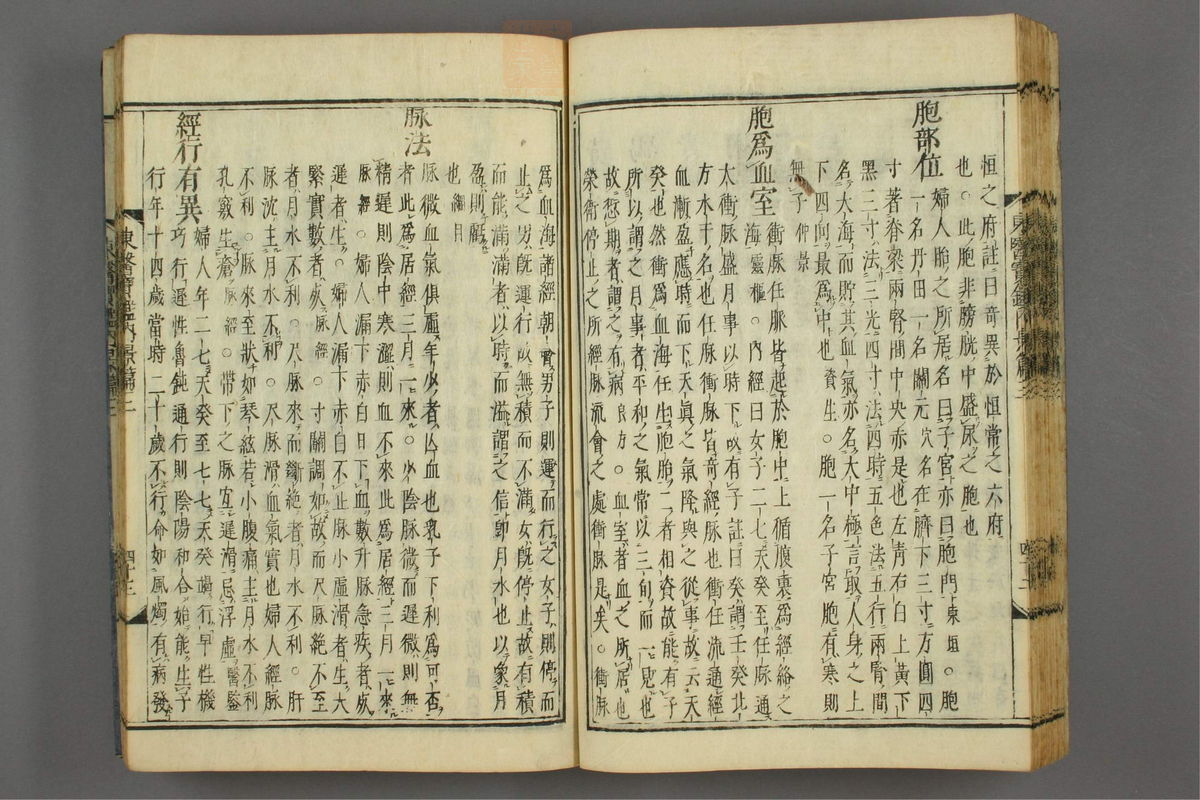 恒之府註曰奇異於恒常之六府
也。此胞非膀胱中盛尿之胞也
胞部位
婦人胞之所居名曰子宮亦曰胞門東垣。胞
一名丹田一名關元穴名在臍下三寸方圓四
寸著脊梁兩腎間中央赤是也左青右白上黃下
黑三寸法三光四寸法四時五色法五行兩腎間
名大海而貯其血氣亦名大中極言取人身之上
下四向最為中也資生。胞一名子宮胞有寒則
無子仲景
胞爲血室
衝脉任脉皆起於胞中上循腹裏爲經絡之
海靈樞。內經曰女子二七天癸至任脉通
太衝脉盛月事以時下故有子註曰癸謂壬癸北
方水干名也任脉衝脉皆奇經脉也衝任流通經
血漸盈應時而下天眞之氣降與之從事故云天
癸也然衝爲血海任主胞胎二者相資故能有子
所以謂之月事者平和之氣常以三旬而一見也
故愆期者謂之有病良方。血室者血之所居也
榮衛停止之所經脉流會之處衝脉是矣。衝脉
爲血海諸經朝會男子則運而行之女子則停而
止之男旣運行故無積而不滿女旣停止故有積
而能滿滿者以時而溢謂之信卽月水也以象月
盈則虧
也綱目
脉法
脉微血氣俱虛年少者亾血也乳子下利爲可否
者此爲居經三月一來。少陰脉微而遲微則無
精遲則陰中寒澀則血不來此爲居經三月一來
脉經。婦人漏下赤白日下血數升脉急疾者死
遲者生。婦人漏下赤白不止脉小虛滑者生大
緊實數者死脉經。寸關調如故而尺脉絕不至
者月水不利。尺脉來而斷絕者月水不利。肝
脉沈主月水不利。尺脉滑血氣實也婦人經脉
不利。脉來至狀如琴絃苦小腹痛主月水不利
孔竅生瘡脉經。帶下之脉宜遲滑忌浮虛醫鑑
經行有異
婦人年二七天癸至七七天癸竭行早性機
巧行遲性魯鈍通行則陰陽和合始能生子
行年十四歲當時二十歲不行命如風燭有病發